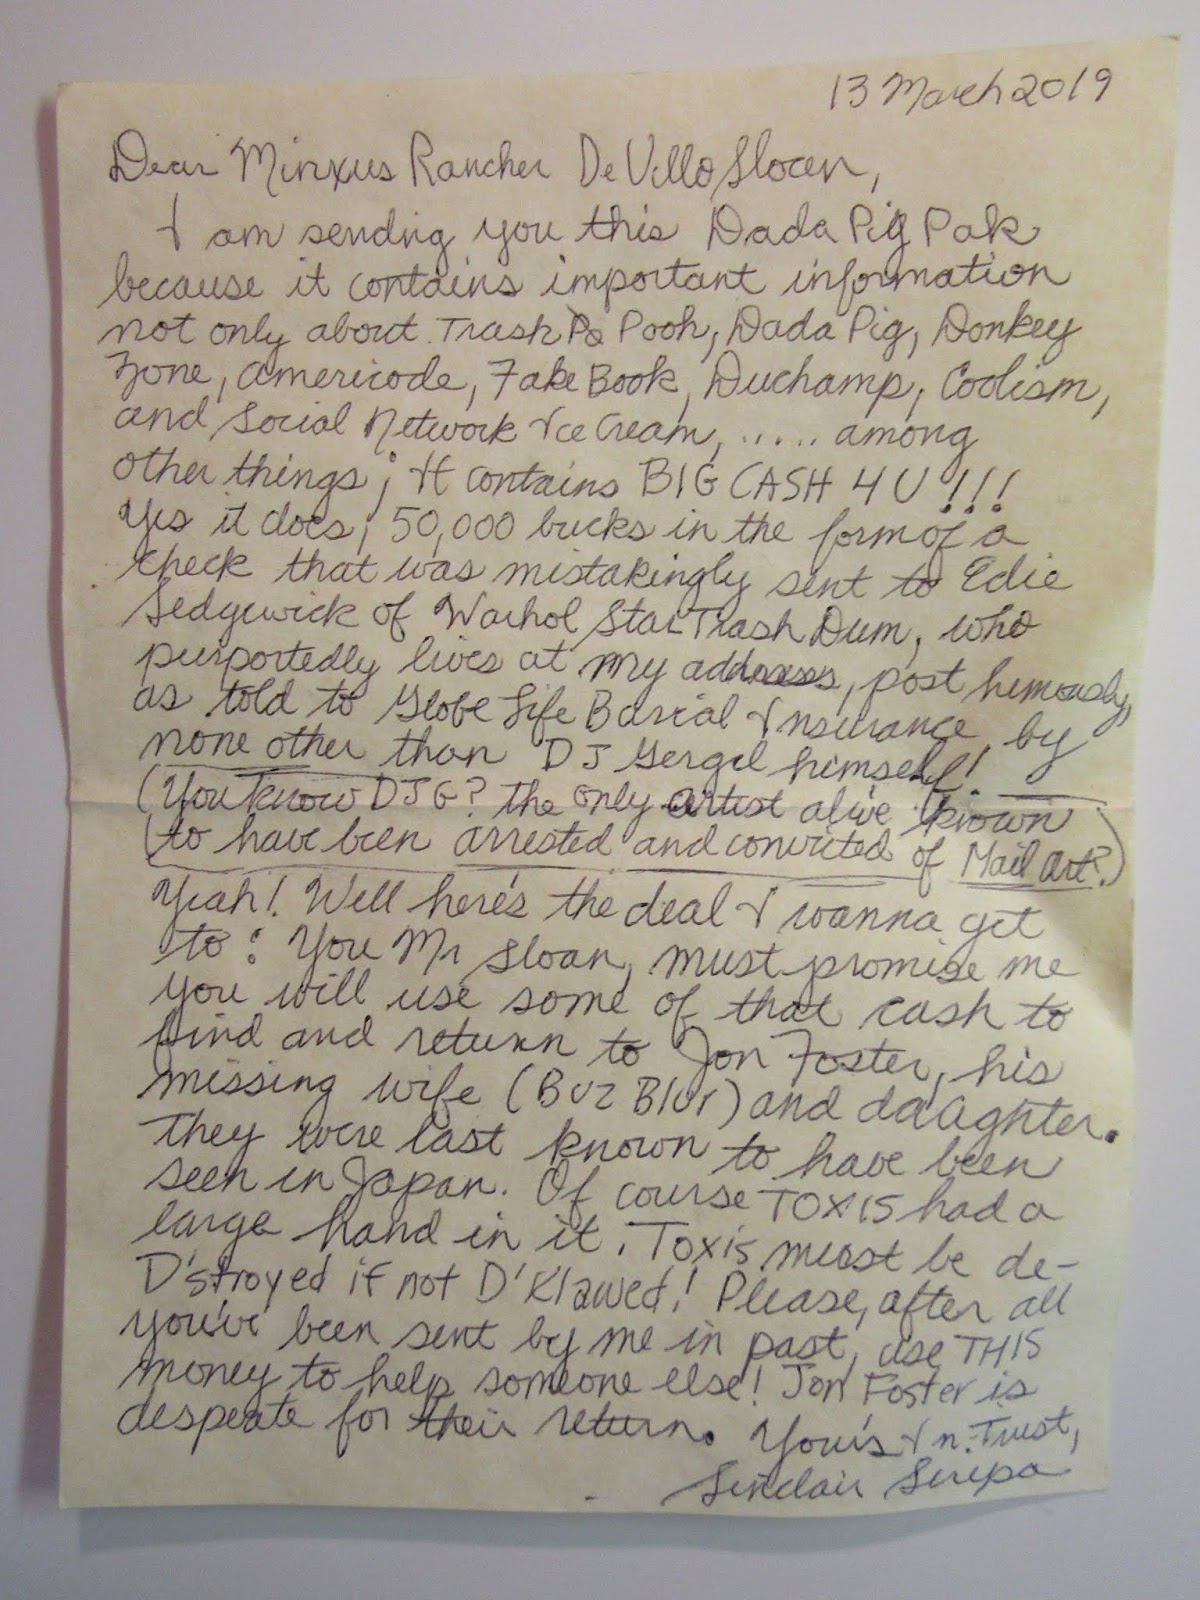 13 March 2019
Dear Minxus Rancher De Villo Sloan,
I am sending you this Dada Pig Pak
because it contains important information
not only about Trash Po Pooh, Dada Pig, Donkey
Zone, americode, Fake Book, Duchamp, Coolism,
and Social Network Ice Cream, ..... among
other things; It contains BIG CASH 4 U!!!
Yes it does, 50,000 bucks in the form of a
check that was mistakingly sent to Edie
Sedgewick of Warhol Star Trash Dum, who
purportedly lives at my address, post humously,
as told to Globe Life Burial Insurance, by
none other than DJ Gergel himself!
(You know DJG? the only artist alive known
to have been arrested and convicted of Mail Art?)
Yeah! Well here's the deal I wanna get
to: You Mr Sloan, must promise me
you will use some of that cash to
find and return to Jon Foster, his
missing wife (Buz Blur) and daughter.
They were last known to have been
seen in Japan. Of course TOXIS had a
large hand in it. Toxis must be de-
D'stroyed if not D'Klawed! Please, after all
you've been sent by me in past, use THIS
money to help someone else! Jon Foster is
desperate for their return. Your's In. Trust,
Sinclair